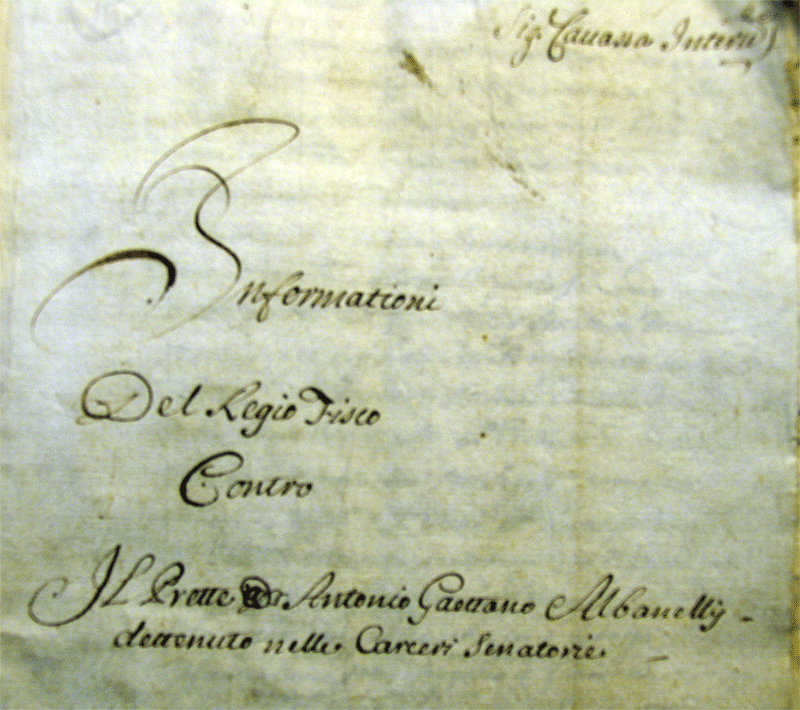 Sig. Cauassa
Informationi
Del Regio Fisco
Contro
Il Prette Antonio Gaettano Albanelly
dettenuto nelle Carceri Senatorie.